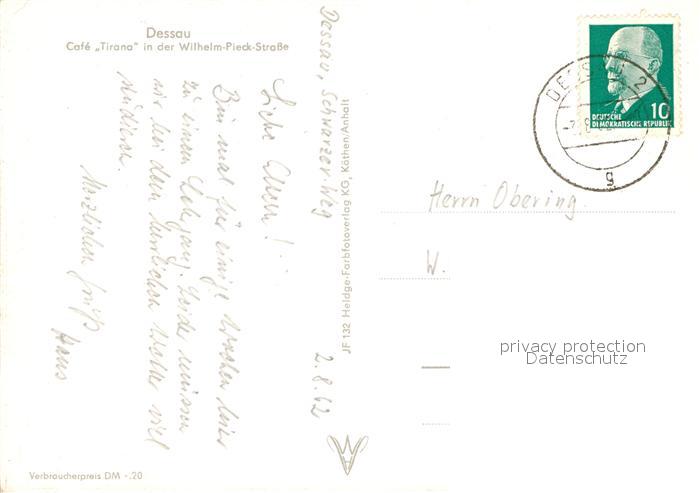 Dessau
Café „Tirana" in der Wilhelm-Pieck-Straße
Dessau, Schwarzer Weg
2.8.62
Liebe Eltern!
Bin mal für einige Wochen hier
zu einem Lehrgang. Leider müssen
wir bei dem herrlichen Wetter viel
studieren.
Herzlichen Gruß
Hans
JF 132 Heldge-Farbfotoverlag KG, Köthen/Anhalt
Verbraucherpreis DM -.20
DEUTSCHE
DEMOKRATISCHE REPUBLIK
10
DESSAU 2
g
Herrn Obering.
W.
privacy protection
Datenschutz